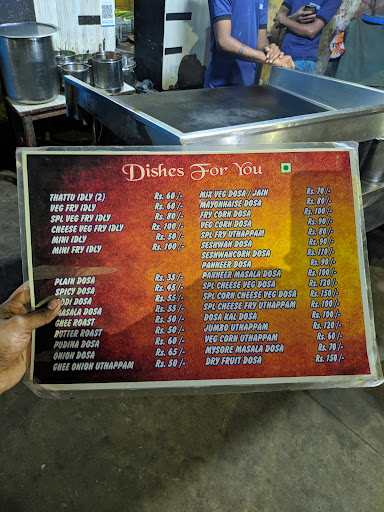 Dishes For You
THATTU IDLY (2) Rs. 60 /-
VEG FRY IDLY Rs. 60 /-
SPL VEG FRY IDLY Rs. 80 /-
CHEESE VEG FRY IDLY Rs. 100 /-
MINI IDLY Rs. 50 /-
MINI FRY IDLY Rs. 100 /-
PLAIN DOSA Rs. 35 /-
SPICY DOSA Rs. 45 /-
PODI DOSA Rs. 55 /-
MASALA DOSA Rs. 55 /-
GHEE ROAST Rs. 50 /-
BUTTER ROAST Rs. 50 /-
PUDINA DOSA Rs. 60 /-
ONION DOSA Rs. 65 /-
GHEE ONION UTHAPPAM Rs. 50 /-
MIX VEG DOSA / JAIN Rs. 70 /-
MAYONNAISE DOSA Rs. 80 /-
FRY CORN DOSA Rs. 100 /-
VEG CORN DOSA Rs. 90 /-
SPL FRY UTHAPPAM Rs. 80 /-
SESHWAN DOSA Rs. 90 /-
SESHWANCORN DOSA Rs. 110 /-
PANNEER DOSA Rs. 90 /-
PANNEER MASALA DOSA Rs. 100 /-
SPL CHEESE VEG DOSA Rs. 120 /-
SPL CORN CHEESE VEG DOSA Rs. 150 /-
SPL CHEESE FRY UTHAPPAM Rs. 100 /-
DOSA KAL DOSA Rs. 100 /-
JUMBO UTHAPPAM Rs. 120 /-
VEG CORN UTHAPPAM Rs. 60 /-
MYSORE MASALA DOSA Rs. 70 /-
DRY FRUIT DOSA Rs. 150 /-